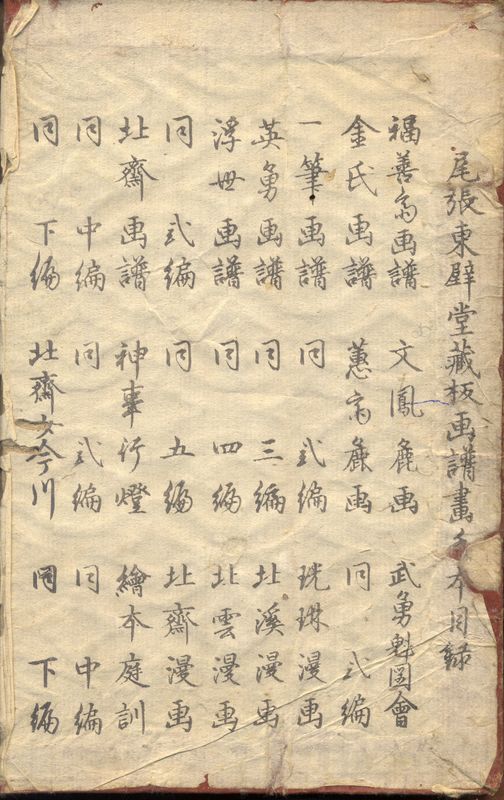 尾張東壁堂藏板画譜畫手本目録
福善斎画譜 文鳳麁画 武勇魁図會
金氏画譜 蕙斎麁画 同 弍編
一筆画譜 同 弍編 珖琳漫画
英勇画譜 同 三編 北溪漫画
浮世画譜 同 四編 北雲漫画
同 弍編 同 五編 北齋漫画
北齋画譜 神事行燈 繪本庭訓
同 中編 同 弍編 同 中編
同 下編 北齋女今川 同 下編